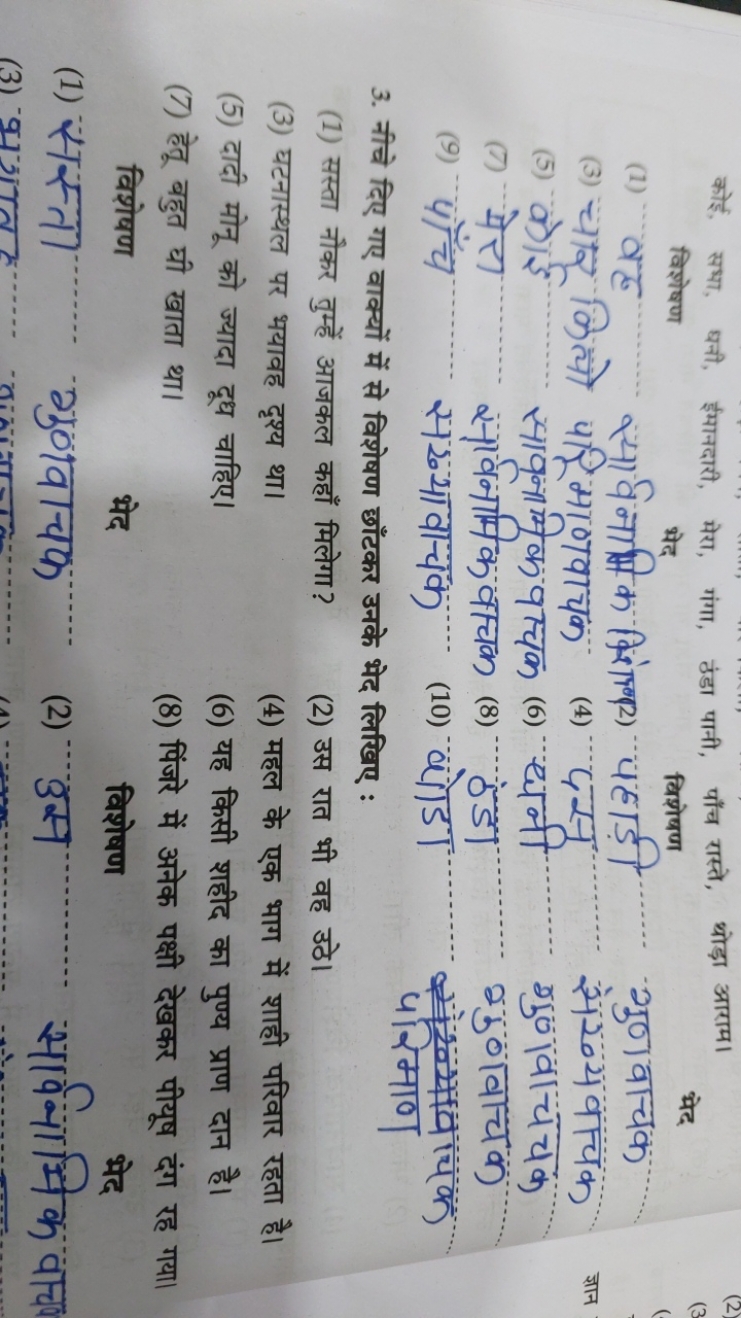 कोई, सभा, धनी, ईमानदारी, मेरा, गंगा, ठंडा पानी, पाँच रास्ते, थोड़ा आराम।
विशेषण भेद विशेषण भेद
(1) वह (2) पहाड़ी गुणवाचक
(3) चार किलो परिमाणवाचक (4) दस संख्यवाचक
(5) कोई सार्वनामिक वाचक (6) धानी गुणवाचक
(7) मेरा सार्वनामिक वाचक (8) ठंडा गुणवाचक
(9) पाँच संख्यावाचक (10) थोडा परिमाण
3. नीचे दिए गए वाक्यों में से विशेषण छाँटकर उनके भेद लिखिए :
(1) सस्ता नौकर तुम्हें आजकल कहाँ मिलेगा? (2) उस रात भी वह उठे।
(3) घटनास्थल पर भयावह दृश्य था। (4) महल के एक भाग में शाही परिवार रहता है।
(5) दादी मोनू को ज्यादा दूध चाहिए। (6) यह किसी शहीद का पुण्य प्राण दान है।
(7) हेतू बहुत घी खाता था। (8) पिंजरे में अनेक पक्षी देखकर पीयूष दंग रह गया।
विशेषण भेद विशेषण भेद
(1) सस्ता गुणवाचक (2) उस सार्वनामिक
(3) भयावह
ज्ञान